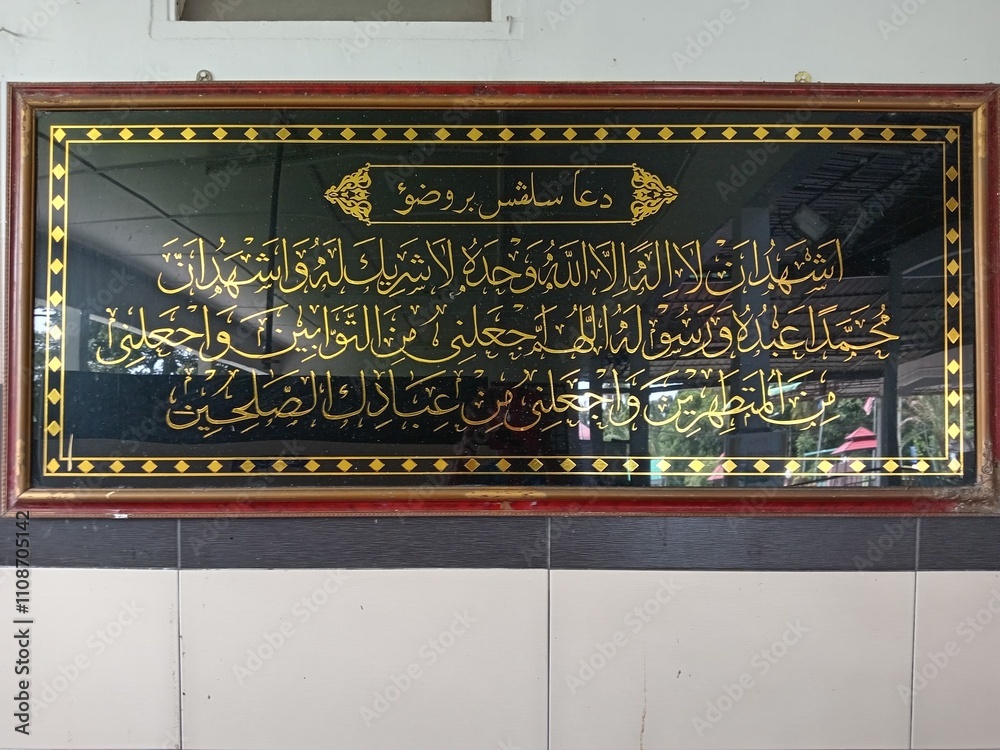 دعا سلڤس بروضؤ
اَشْهَدُ اَنْ لَا اِلٰهَ اِلَّا اللّٰهُ وَحْدَهُ لَا شَرِيْكَ لَهُ وَاَشْهَدُ اَنَّ
مُحَمَّدًا عَبْدُهُ وَرَسُوْلُهُ اَللّٰهُمَّ جْعَلْنِى مِنَ التَّوَّابِيْنَ وَاجْعَلْنِى
مِنَ الْمُتَطَهِّرِيْنَ وَاجْعَلْنِى مِنْ عِبَادِكَ الصَّلِحِيْنَ
Adobe Stock | #1108705142